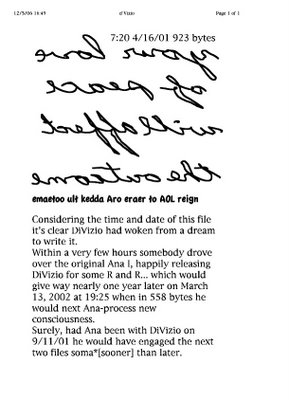 d'Vizio Page 1 of 1
7:20 4/16/01 923 bytes
your love
of peace
will affect
the outcome
emaetoo ult kedda Aro eraer to AOL reign
Considering the time and date of this file
it's clear DiVizio had woken from a dream
to write it.
Within a very few hours somebody drove
over the original Ana I, happily releasing
DiVizio for some R and R... which would
give way nearly one year later on March
13, 2002 at 19:25 when in 558 bytes he
would next Ana-process new
consciousness.
Surely, had Ana been with DiVizio on
9/11/01 he would have engaged the next
two files soma*[sooner] than later.